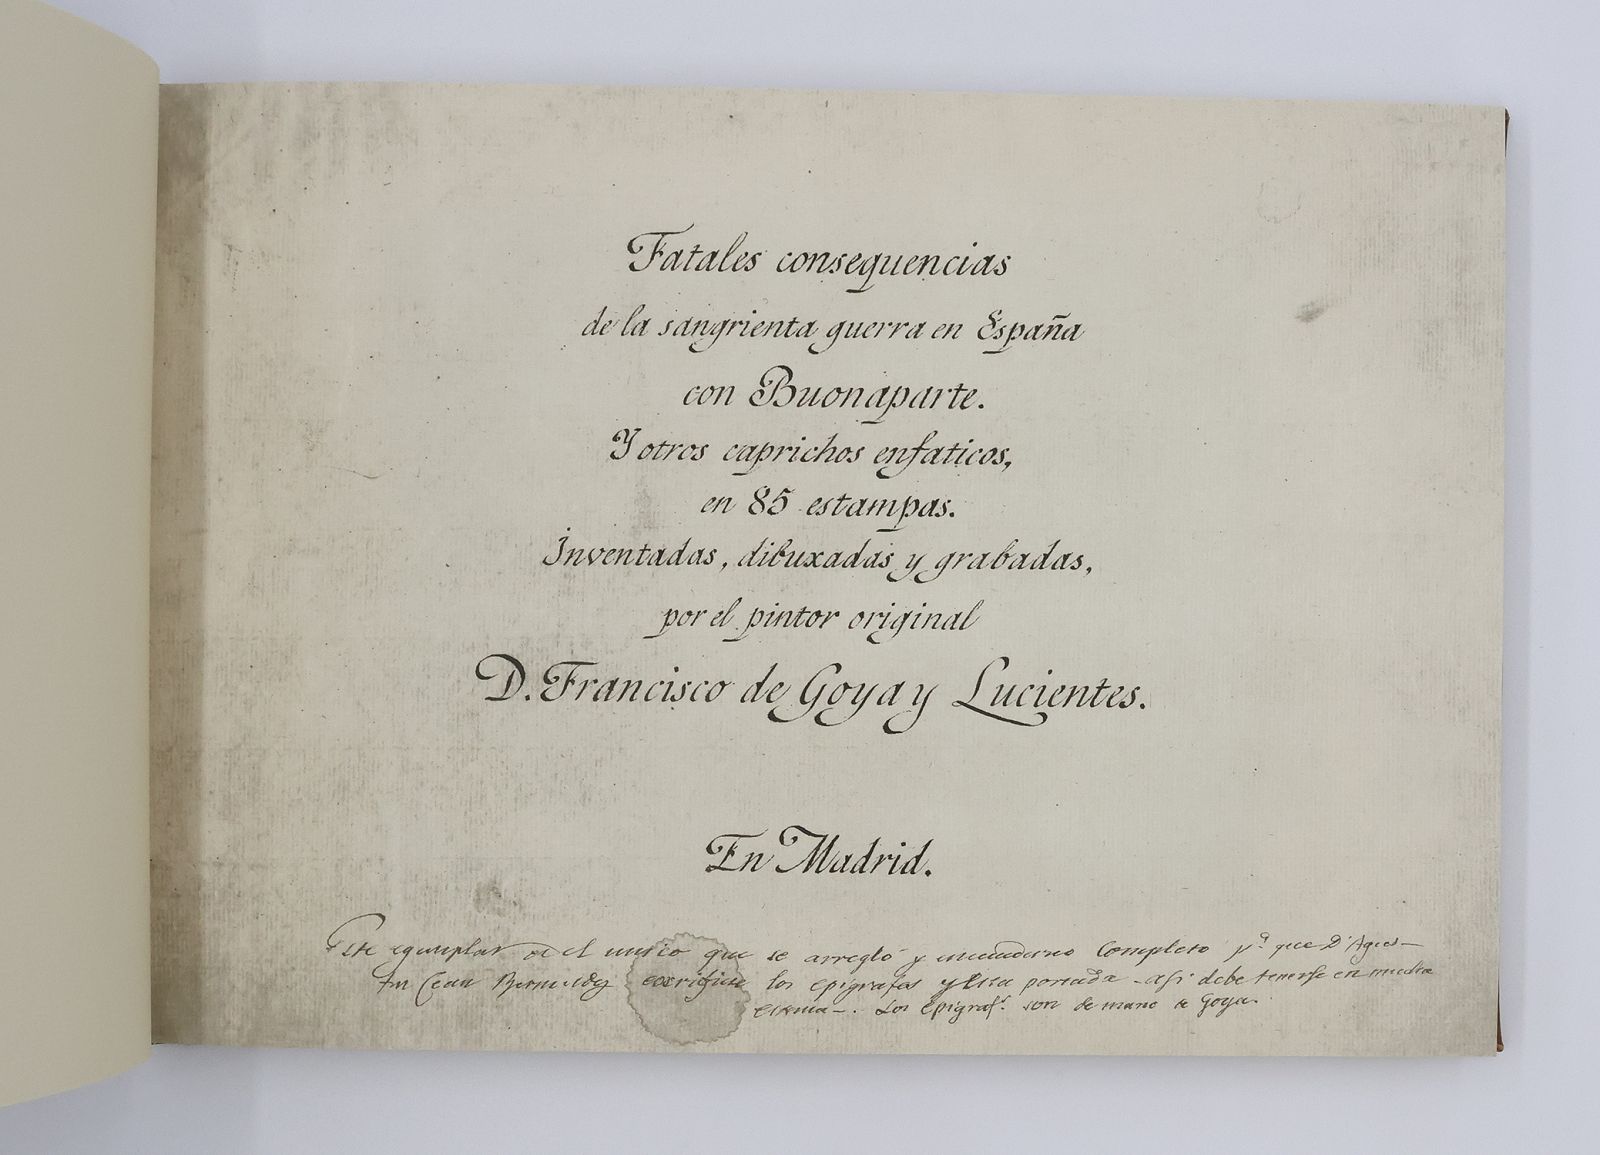 Fatales consequencias
de la sangrienta guerra en España
con Buonaparte.
Y otros caprichos enfaticos,
en 85 estampas.
Inventadas, dibuxadas y grabadas,
por el pintor original
D. Francisco de Goya y Lucientes.
En Madrid.
Este egemplar es el unico que se arregló y encuaderno Completo pª que Dⁿ Agus-
tin Cean Bermudez los epigrafes y esta portada. asi debe tenerse en mucha
estima-. Los Epigrafˢ. son de mano de Goya.